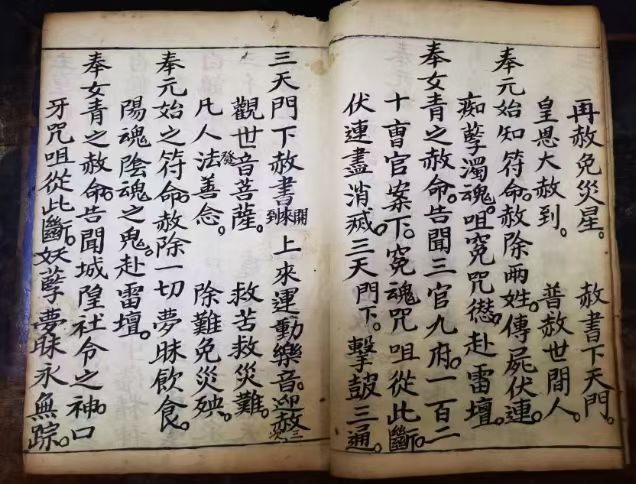 再赦免災星。 赦書下天門。
皇恩大赦到。 普赦世間人。
奉元始知符命。赦除兩姓。傳屍伏連。
痴孽濁魂。咀冤咒愆。赴雷壇。
奉女青之赦命。告聞三官九府一百二
十曹官案下。冤魂咒咀從此斷。
伏連盡消滅。三天門下。擊鼓三通。
三天門下赦書開來到 上來運動樂音。迎赦三次
觀世音菩薩。 救苦救災難。
凡人法發善念。 除難免災殃。
奉元始之符命。赦除一切夢昧飲食。
陽魂陰魂之鬼。赴雷壇。
奉女青之赦命。告聞城隍社令之神。口
牙咒咀從此斷。妖孽夢昧永無踪。